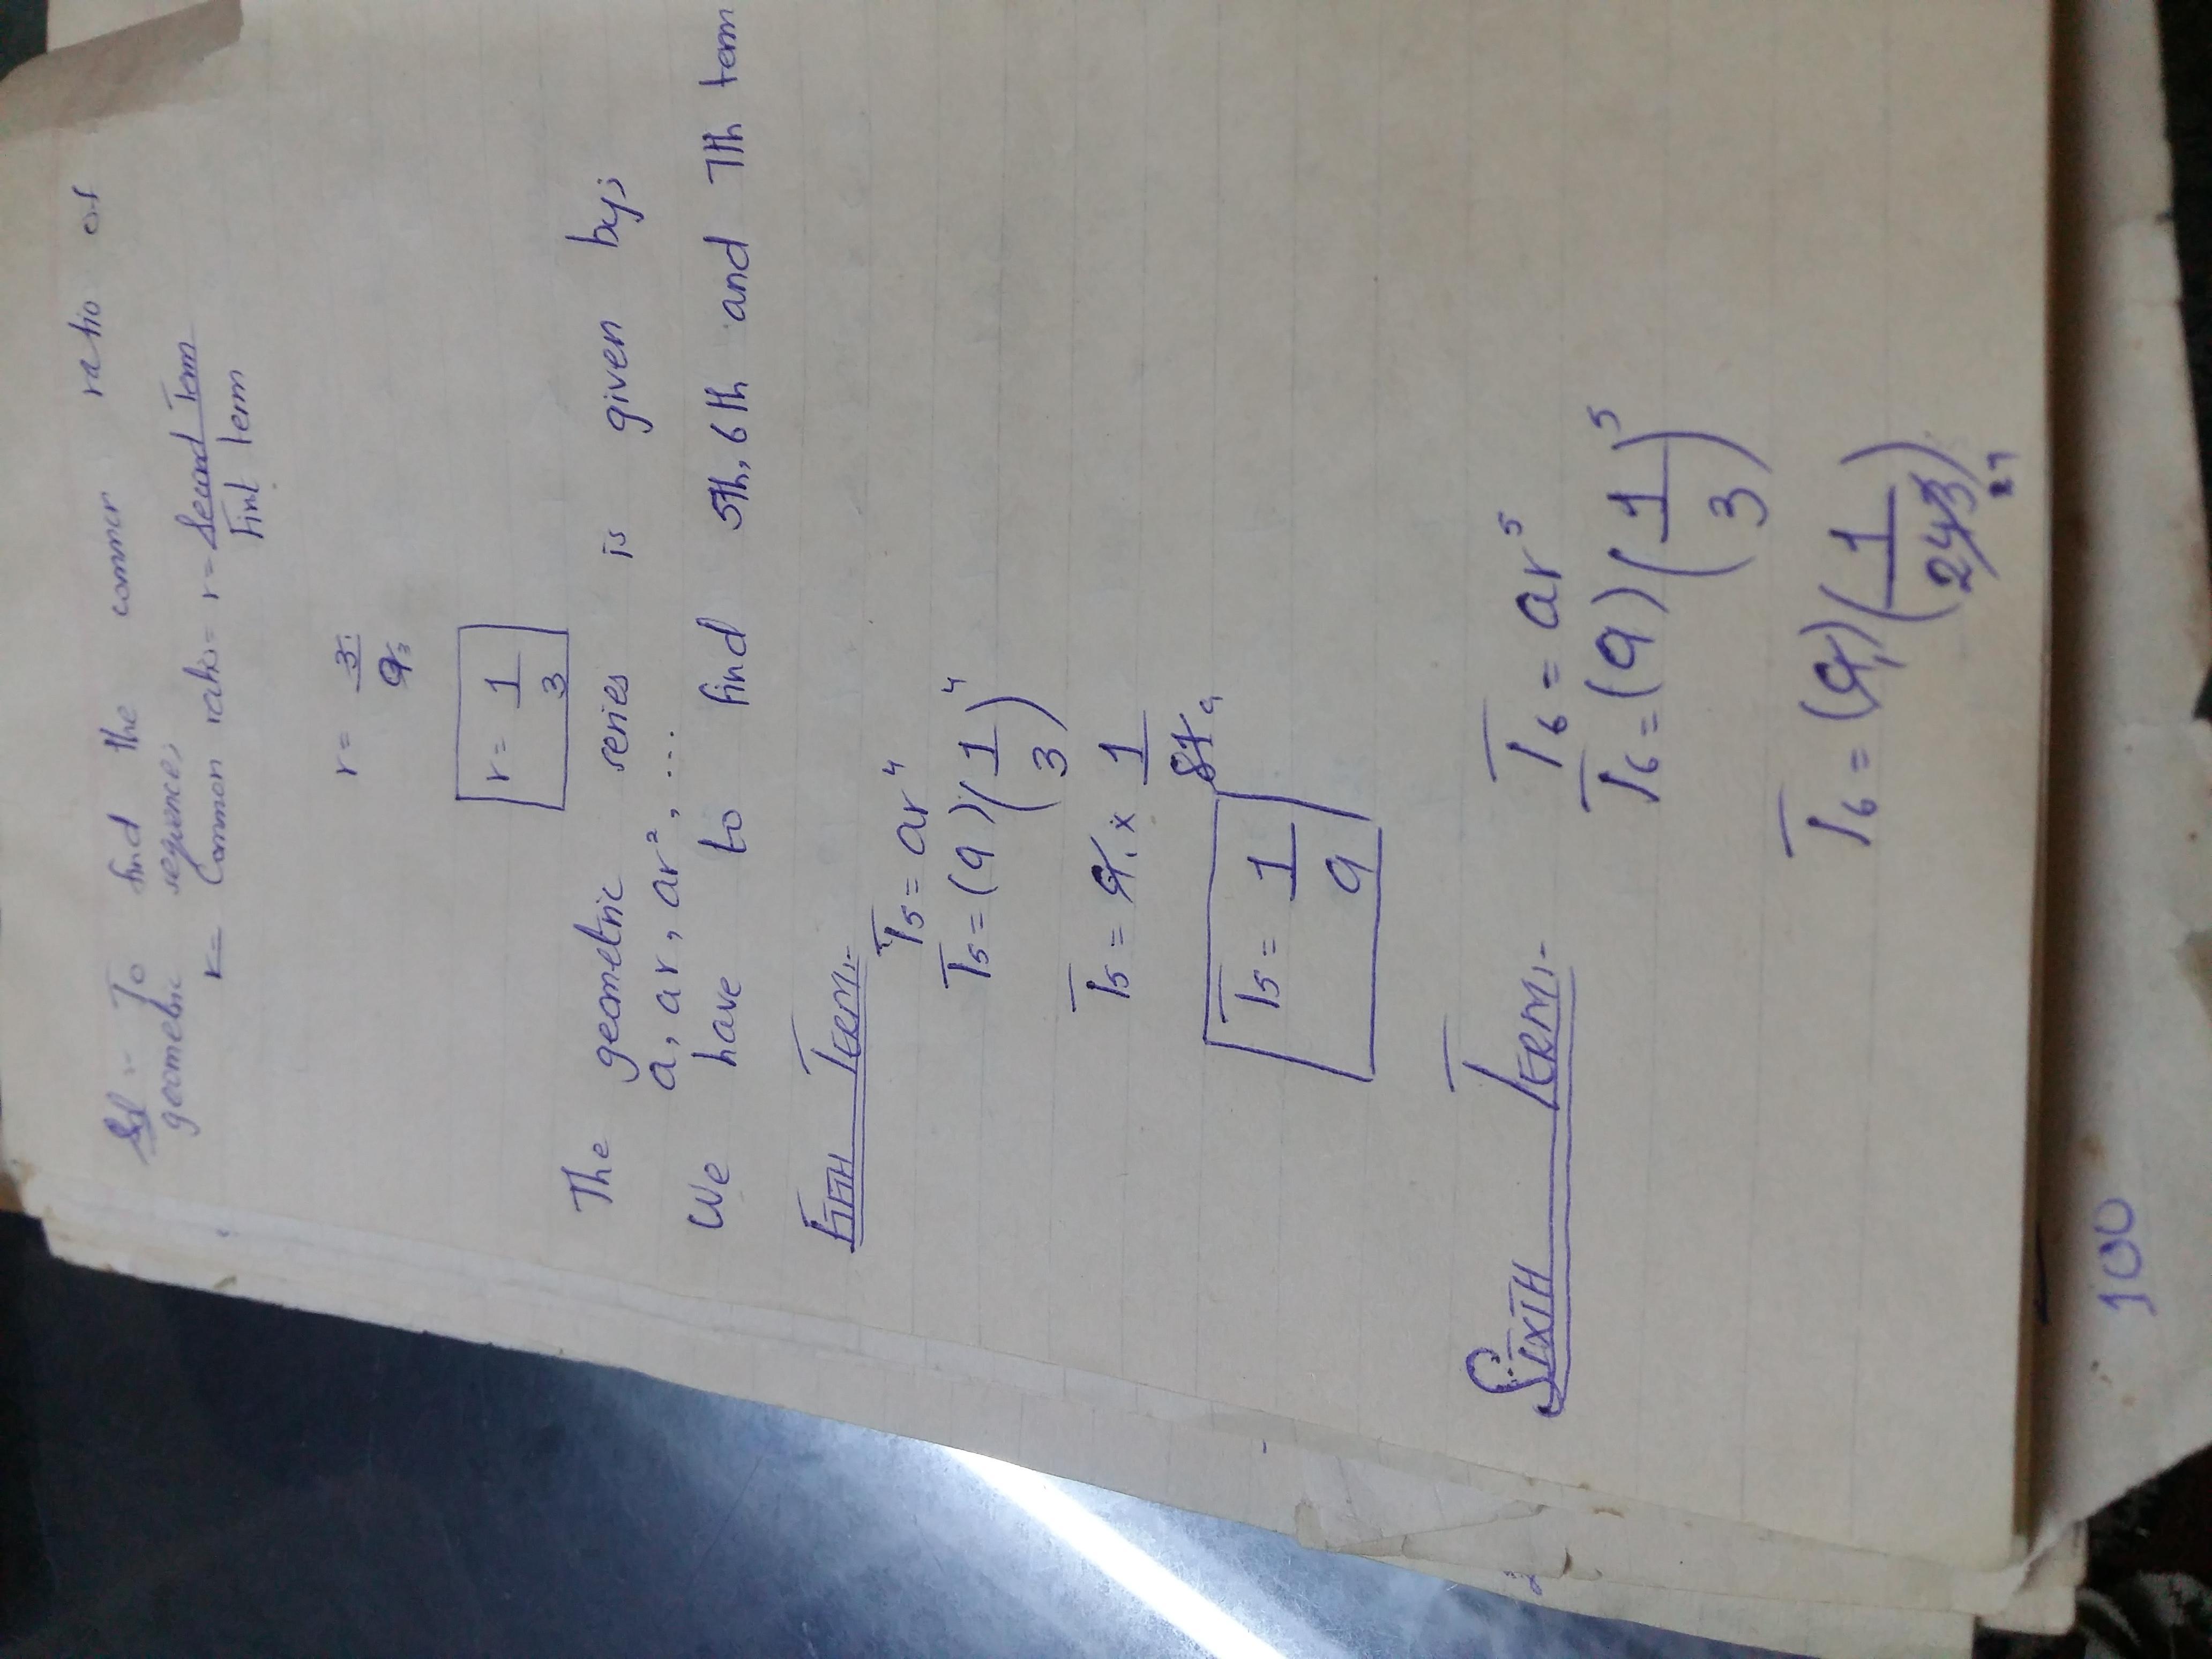 Sol :- To find the common ratio of
geometric sequence,
r= Common ratio = r = Second Term
First term
r = 3 1
9 3
r = 1
3
The geometric series is given by;
a, ar, ar², ...
We have to find 5th, 6th and 7th term
FIFTH TERM:-
T5 = ar⁴
T5 = (9)(1/3)⁴
T5 = 9 1 × 1
81 9
T5 = 1
9
SIXTH TERM:-
T6 = ar⁵
T6 = (9)(1/3)⁵
T6 = (9 1)(1/243)
27
100
2